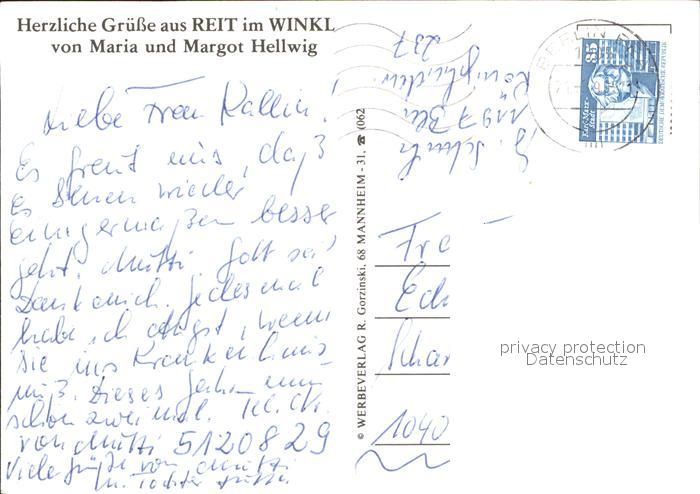 Herzliche Grüße aus REIT im WINKL
von Maria und Margot Hellwig
Liebe Frau Kallin!
Es freut uns, daß
es Ihnen wieder
einigermaßen besser
geht. Mutti Gott sei
Dank auch. Jedesmal
habe ich Angst, wenn
sie ins Krankenhaus
muß. Dieses Jahr nun
schon zweimal. Tel. Nr.
von Mutti 5120829
Viele Grüße von Mutti
u. Tochter
© WERBEVERLAG R. Gorzinski, 68 MANNHEIM - 31, ☎ (062
1197 Bln
237
BERLIN
35
Karl-Marx-Stadt
DEUTSCHE DEMOKRATISCHE REPUBLIK
Fra
Schar
1040
privacy protection
Datenschutz